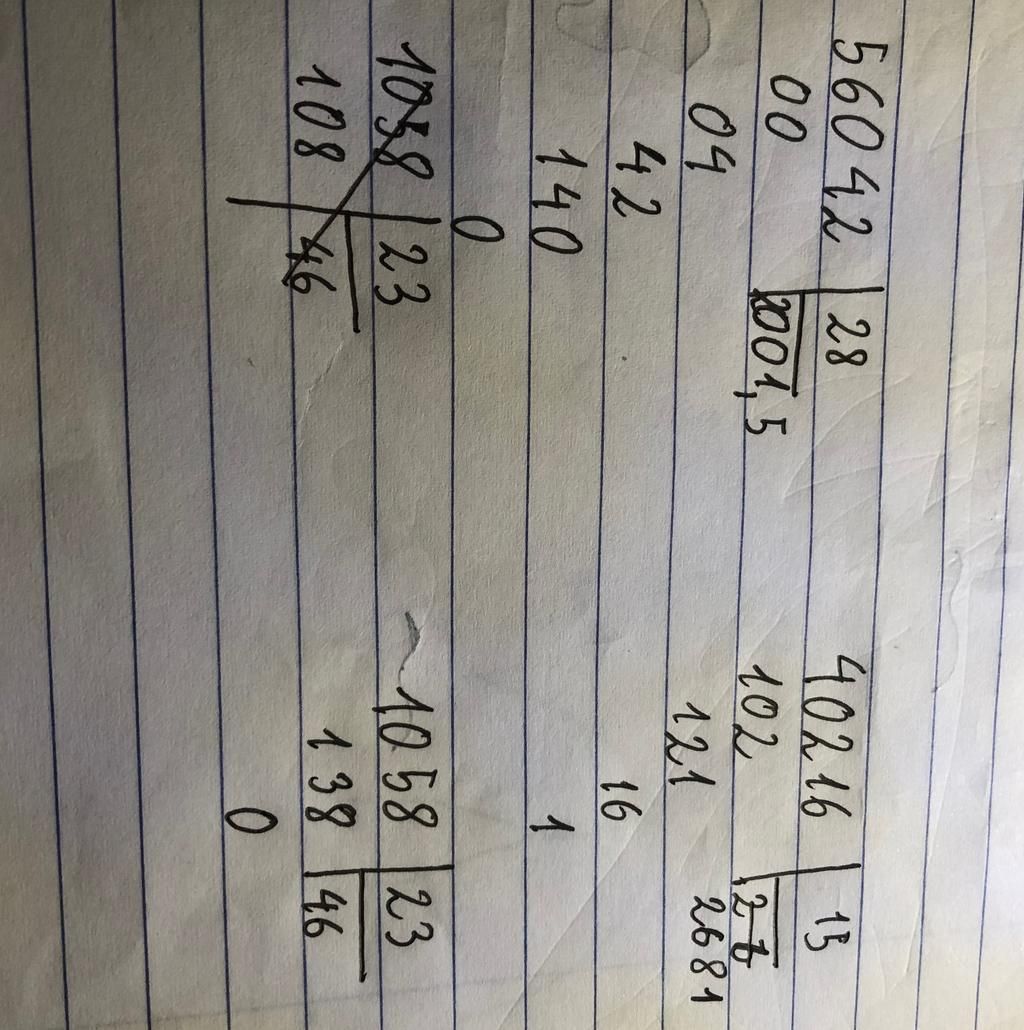 56042 28
00 2001,5
04
42
140
0
40216 15
102
121 2681
16
1
1058 23
108 46
1058 23
138 46
0